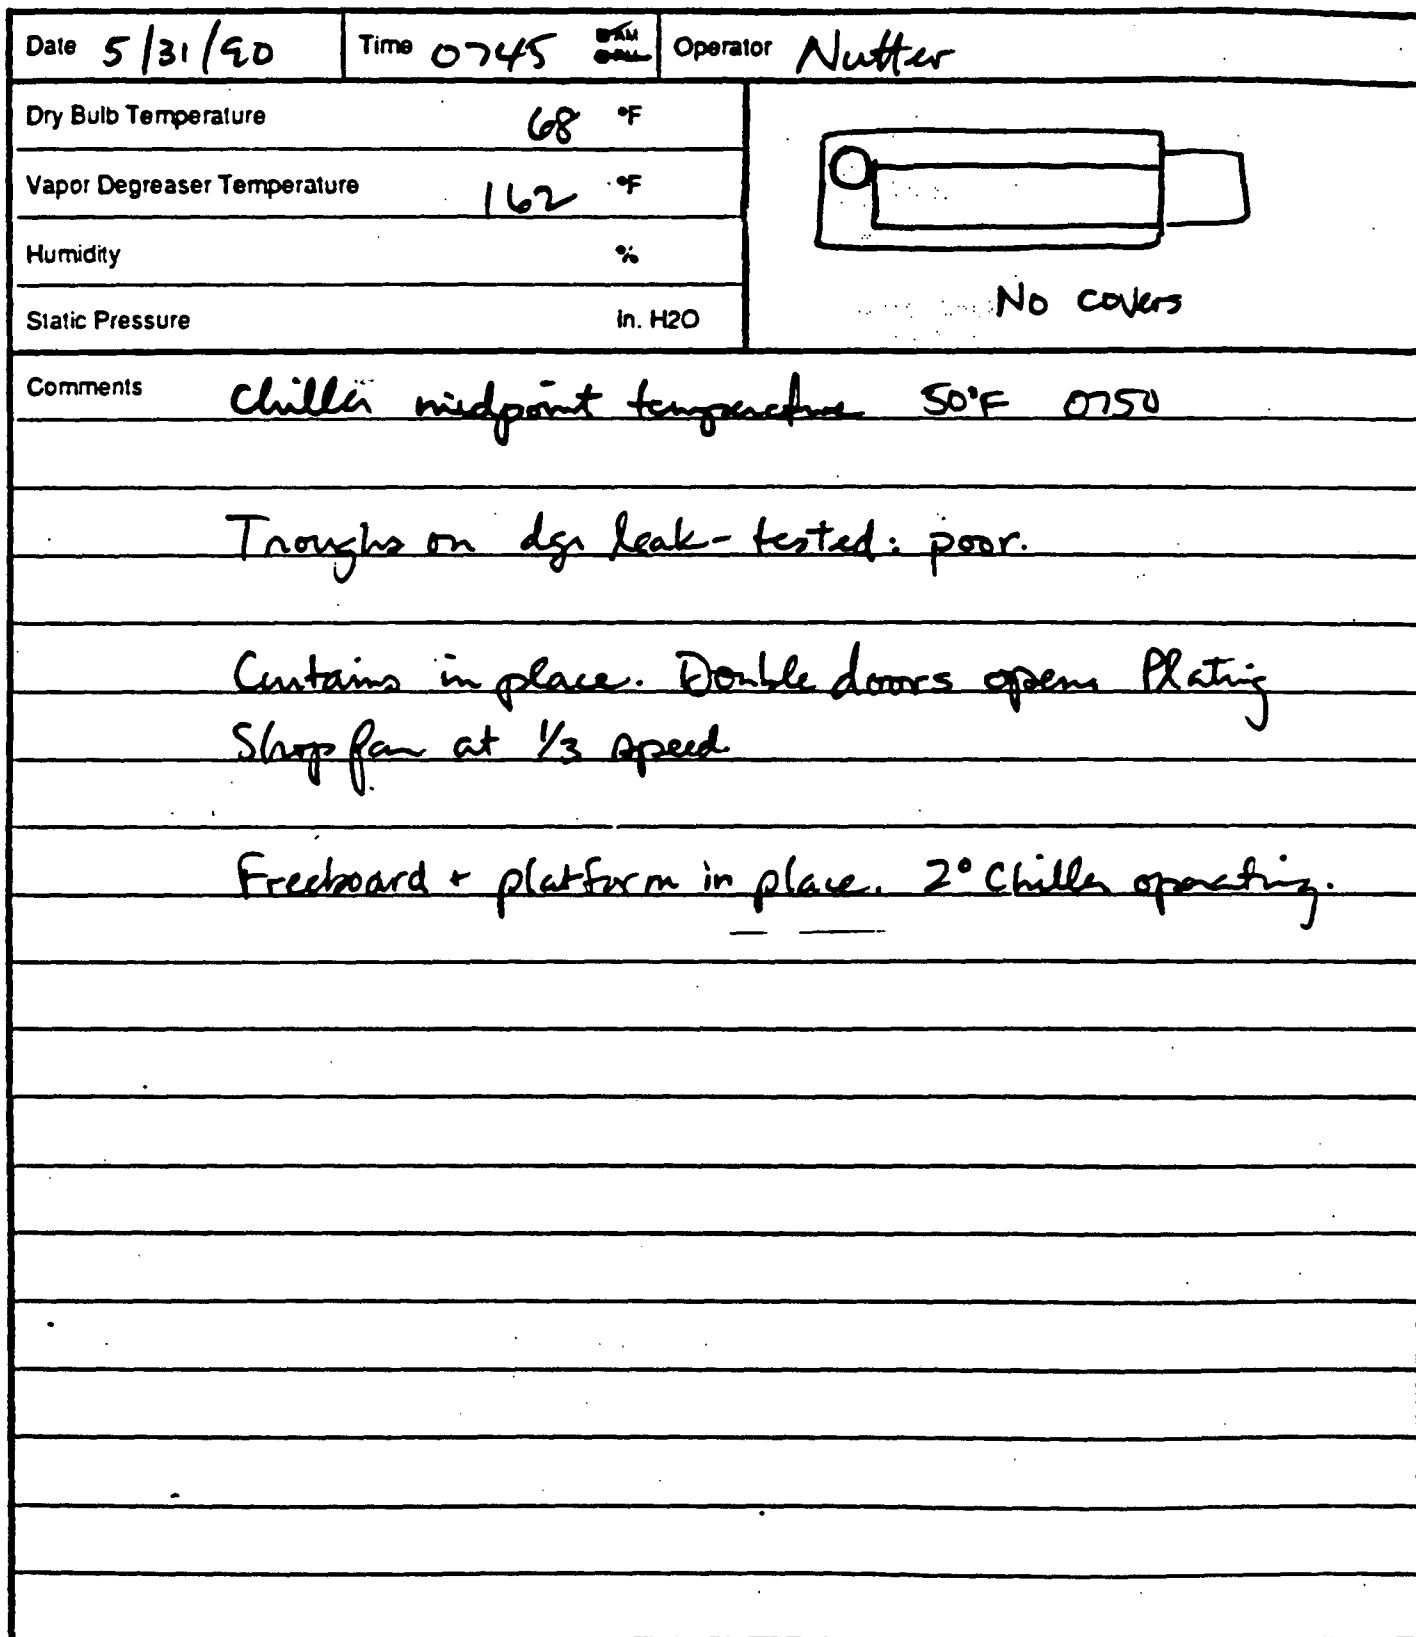 Date 5/31/90 Time 0745 AM PM Operator Nutter
Dry Bulb Temperature 68 °F
Vapor Degreaser Temperature 162 °F
Humidity %
Static Pressure in. H2O
No covers
Comments Chiller midpoint temperature 50°F 0750
Troughs on dgr leak-tested: poor.
Curtains in place. Double doors open. Plating
Shop fan at 1/3 speed.
Freeboard + platform in place. 2° Chiller operating.